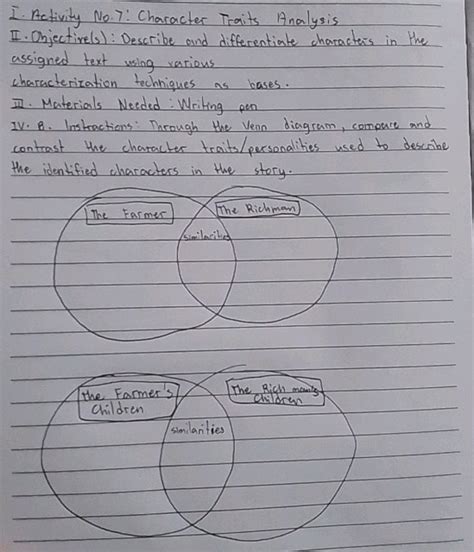 I. Activity No.7: Character Traits Analysis
II. Objective(s): Describe and differentiate characters in the
assigned text using various
characterization techniques as bases.
III. Materials Needed: Writing pen
IV. B. Instractions: Through the Venn diagram, compare and
contrast the character traits/personalities used to describe
the identified characters in the story.
The Farmer
The Richman
similarities
The Farmer's
Children
The Rich man's
Children
similarities